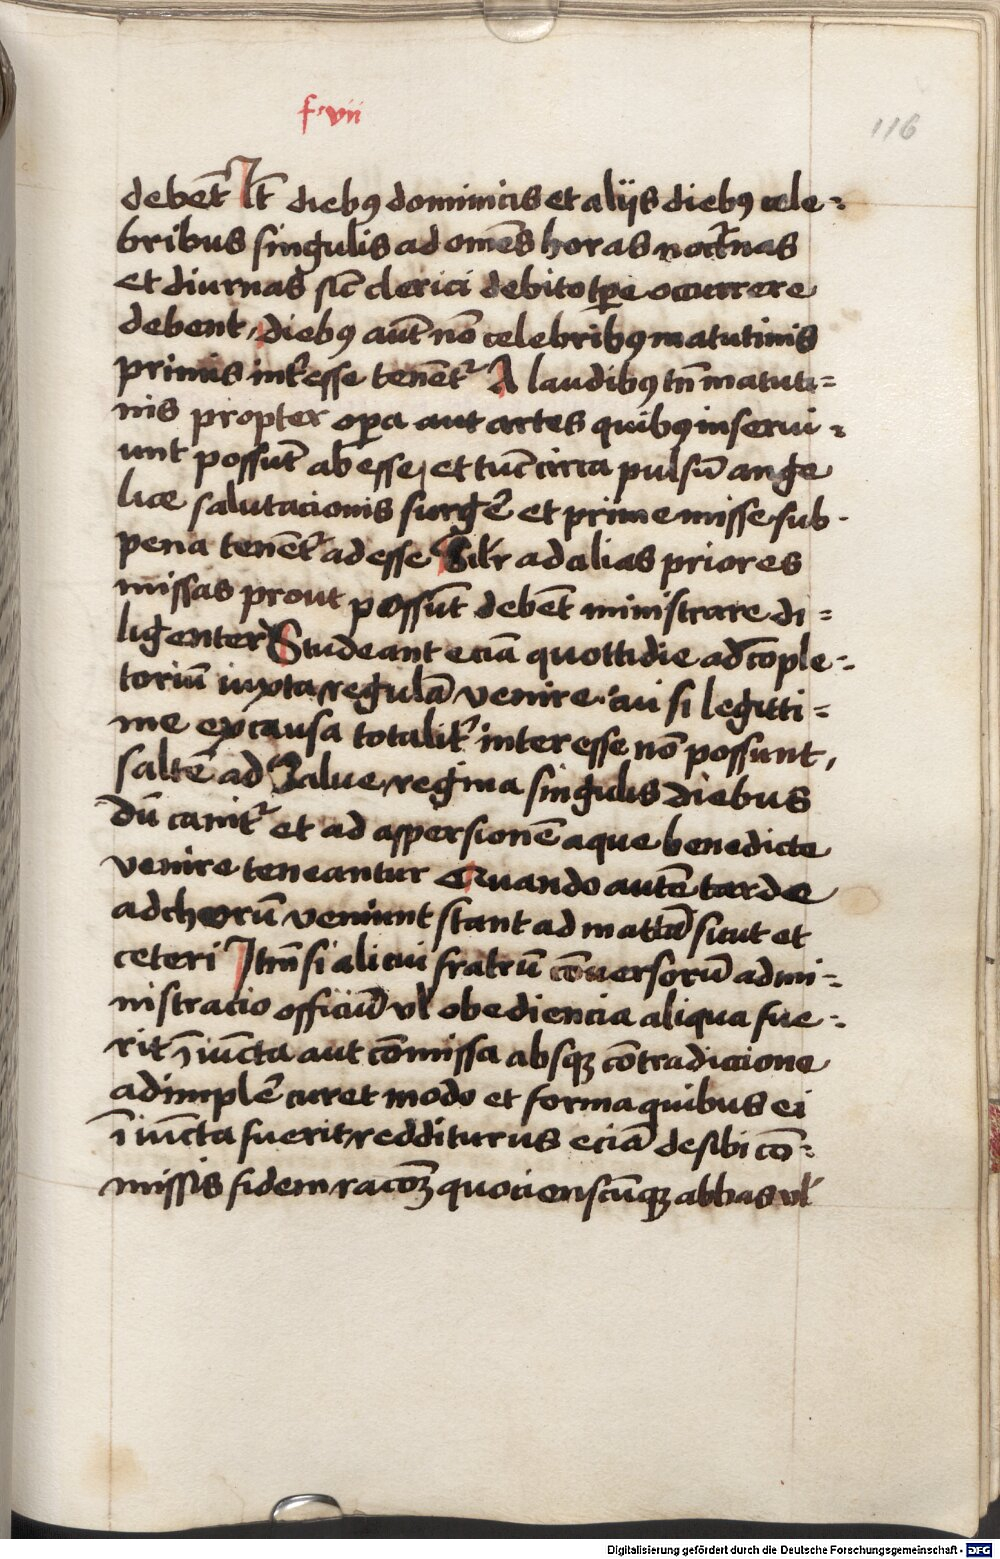 f vii
116
debent̄ It̄ diebꝰ dominicis et aliis diebꝰ cele⸗
bribus singulis ad om̄es horas noct̄nas
et diurnas sic̄ clerici debito tꝑe occurrere
debent, diebꝰ aut̄ nō celebribꝰ matutinis
primis int̓esse tenēt᷑ A laudibꝰ tn̄ matuti⸗
nis propter oꝑa aut artes quibꝰ inserui⸗
unt possūt abesse, et tūc circa pulsū ange
lice salutacionis surgē et prime misse sub⸗
pena tenēt᷑ adesse Silr ad alias priores
missas prout possūt debēt ministrare di⸗
ligenter Studeant eciā quottidie ad cōple⸗
toriū iuxta regulā venire. cui si legitti⸗
me ex causa totalit̓ interesse nō possunt,
saltē ad Salue regina singulis diebus
dū canit᷑ et ad aspersionē aque benedicte
venire teneantur Quando autē tarde
ad chorū veniunt stant ad mattā sicut et
ceteri Itm̄ si alicui fratrū cōuersorū admi⸗
nistracio officiū vl̓ obediencia aliqua fue⸗
rit īiūcta aut cōmissa absqꝫ cōtradiccione
adimplē curet modo et forma quibus ei
īiūcta fuerit, redditurus eciā de sibi cō⸗
missis fidem racōꝫ quocienscūqꝫ abbas vl̓
Digitalisierung gefördert durch die Deutsche Forschungsgemeinschaft - DFG